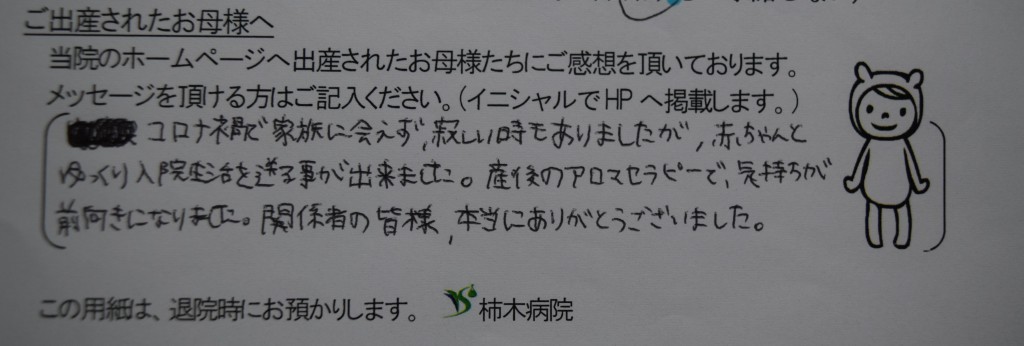 ご出産されたお母様へ
当院のホームページへ出産されたお母様たちにご感想を頂いております。
メッセージを頂ける方はご記入ください。(イニシャルでHPへ掲載します。)
コロナ禍で家族に会えず、寂しい時もありましたが、赤ちゃんと
ゆっくり入院生活を送る事が出来ました。産後のアロマセラピーで、気持ちが
前向きになりました。関係者の皆様、本当にありがとうございました。
この用紙は、退院時にお預かりします。 柿木病院